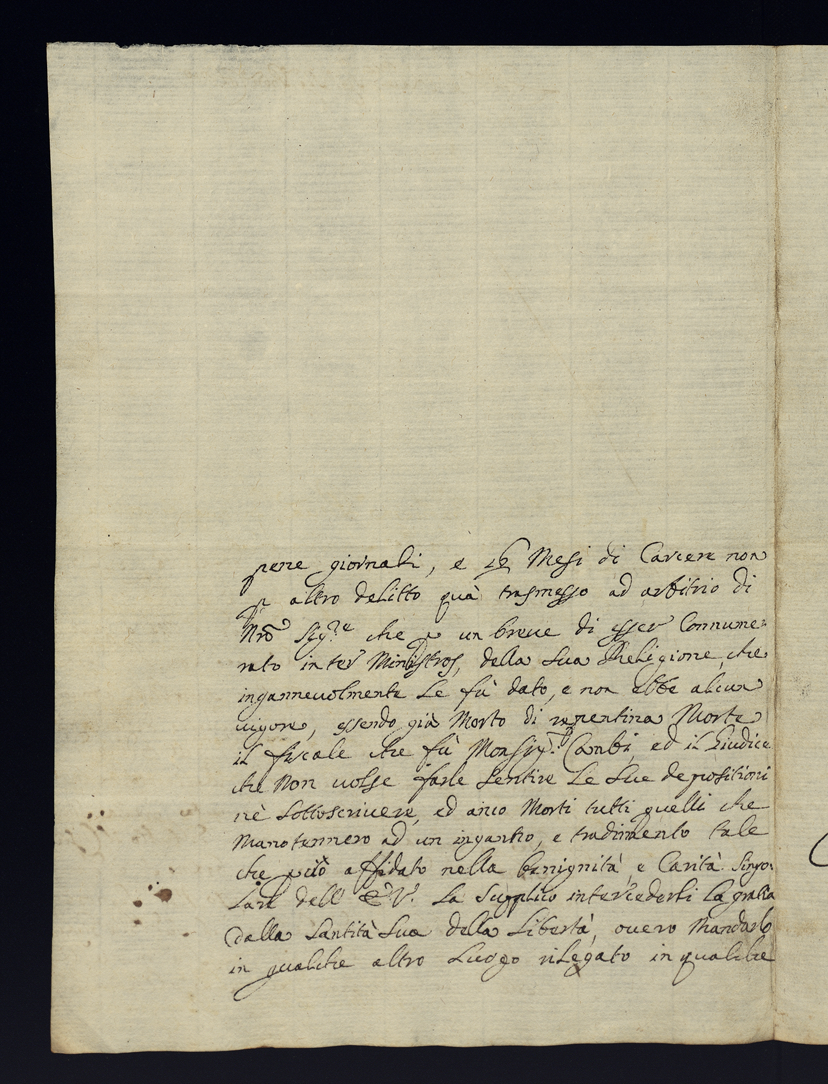 pene giornali, e 16 Mesi di Carcere non
p altro delitto quà trasmesso ad arbitrio di
Nrõ Sig.re che p un breue di esser Connume-
rato inter Ministros, della sua Religione, che
ingannevolmente le fù dato, e non ebbe alcun
uigore, essendo già Morto di repentina Morte
il fiscale che fù Monsig.r Carabi, ed il Giudice
che Non uolse farle sentire le sue depositioni
nè sottoscriuere, ed anco Morti tutti quelli che
Manotennero ad un inganno, e tradimento tale
che però affidato nella benignità, e Carità singo-
lare dell' E.V. la supplico intercederli la gratia
dalla Santità Sua della libertà, ouero Mandarlo
in qualche altro luogo rilegato in qualche